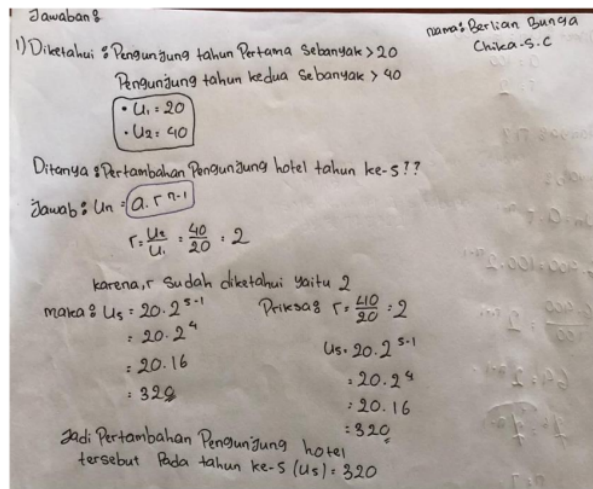 Jawaban:
nama: Berlian Bunga
Chika.S.C
1) Diketahui : Pengunjung tahun Pertama Sebanyak > 20
Pengunjung tahun kedua Sebanyak > 40
• U₁ = 20
• U₂ = 40
Ditanya : Pertambahan Pengunjung hotel tahun ke-5??
Jawab : Un = a.r ⁿ⁻¹
r = U₂/U₁ = 40/20 = 2
karena, r sudah diketahui yaitu 2
maka : U₅ = 20.2⁵⁻¹
= 20.2⁴
= 20.16
= 320
Priksa : r = 40/20 = 2
U₅ = 20.2⁵⁻¹
= 20.2⁴
= 20.16
= 320
Jadi Pertambahan Pengunjung hotel
tersebut Pada tahun ke-5 (U₅) = 320